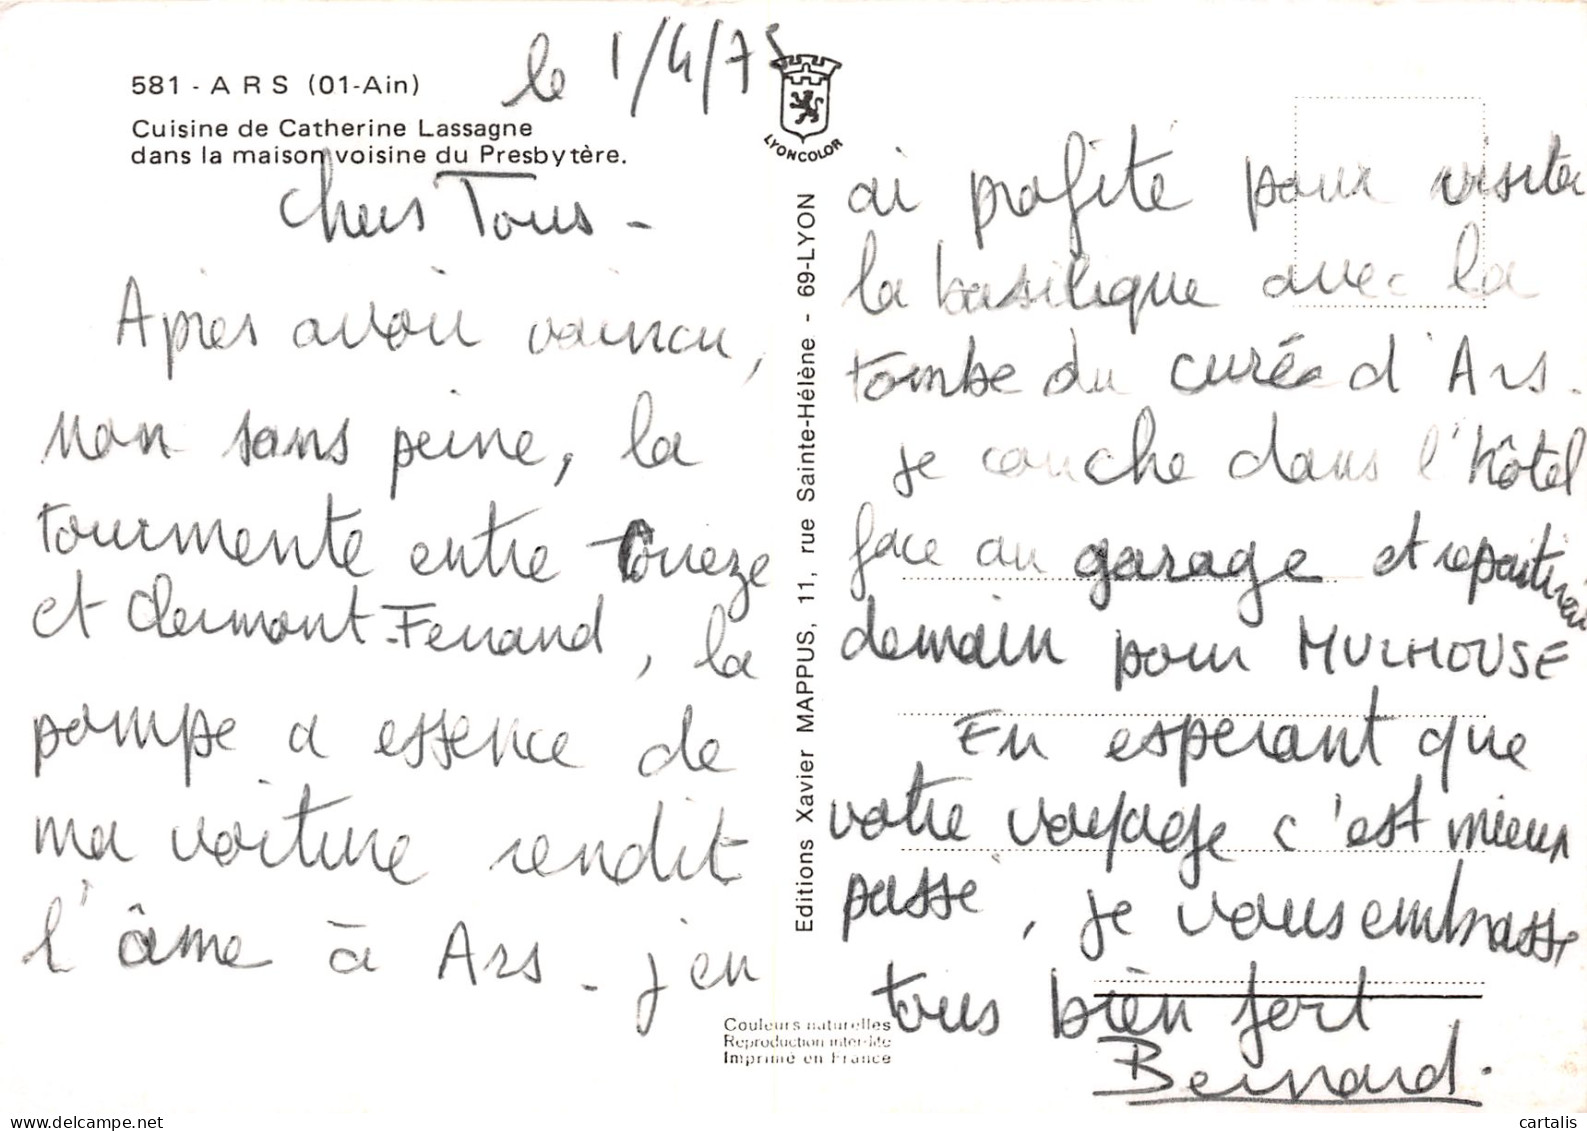 le 1/4/75
581 - ARS (01-Ain)
Cuisine de Catherine Lassagne
dans la maison voisine du Presbytère.
Chers Tous -
Après avoir vaincu,
non sans peine, la
tourmente entre
et Clermont-Ferrand, la
pompe a essence de
ma voiture rendit
l'âme à Ars - j'en
LYONCOLOR
Editions Xavier MAPPUS, 11, rue Sainte-Hélène - 69-LYON
ai profité pour visiter
la basilique avec la
tombe du curé d'Ars.
je couche dans l'hôtel
face au garage et repartirai
demain pour MULHOUSE
En esperant que
votre voyage c'est mieux
passé, je vous embrasse
tous bien fort
Bernard.
Couleurs naturelles
Reproduction interdite
Imprimé en France
www.delcampe.net
cartalis